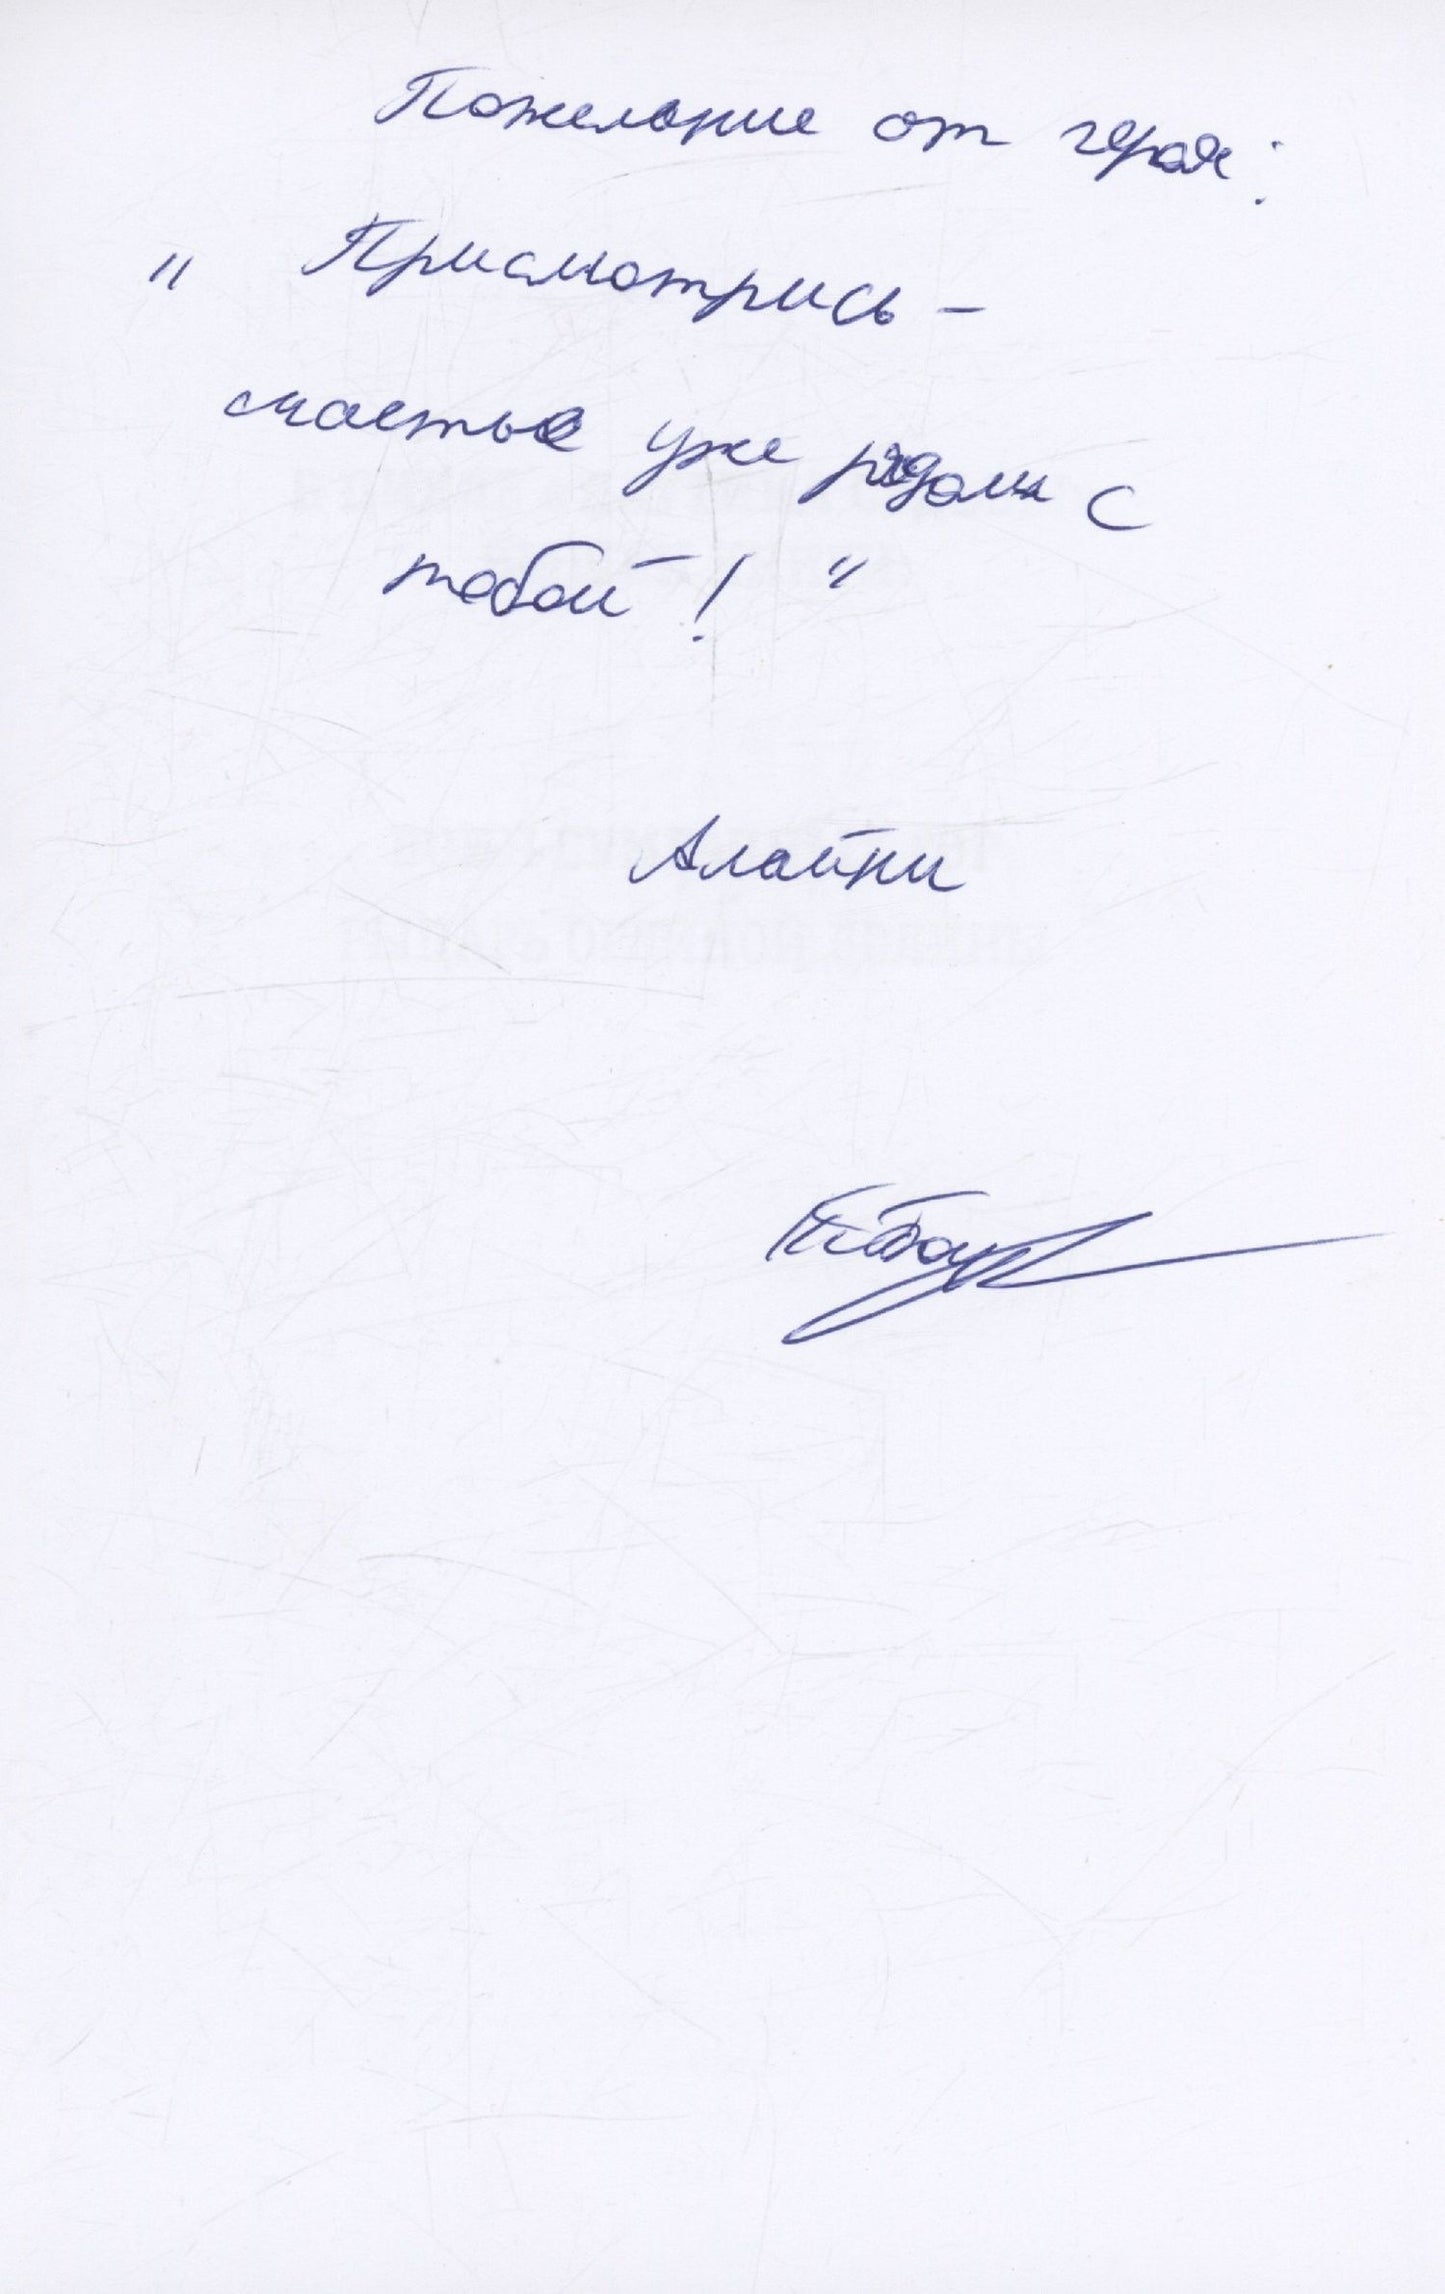 Пожелание от героя:
" Присмотрись –
счастье уже рядом с
тобой! "
Алайни